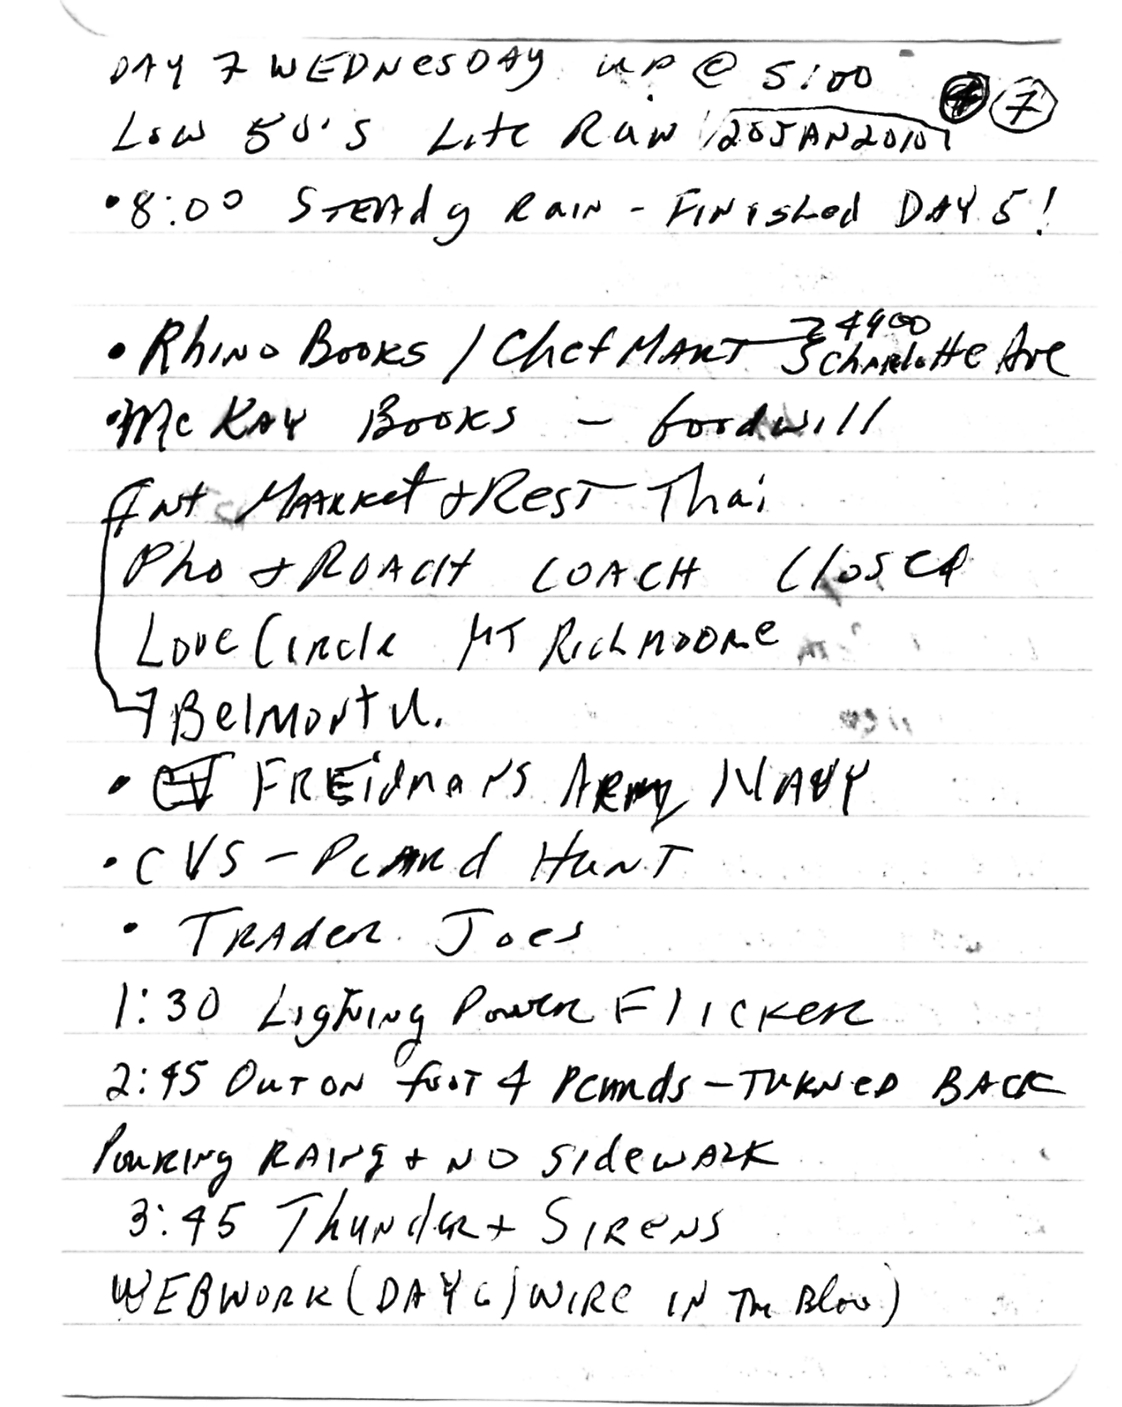 DAY 7 WEDNESDAY up @ 5:00
7
Low 50's Lite Rain 20JAN2010
• 8:00 STEADy RAIN - FINISHED DAY 5!
• RhINO BOOKS / Chef MART 4900 Charlotte Ave
• McKAY BOOKS - Goodwill
Int MARKet + REST Thai
Pho + ROACH COACH Closed
Love Circle MT RichmooRe
Belmont U.
• FREidmans ARmy NAVY
• CVS - PCARd HunT
• TRAdeR Joes
1:30 LigTning Power FlICKeR
2:45 OuT ON fooT 4 PCaRds - TuRNeD BACK
PouRing RAINg + NO SidewALK
3:45 ThundeR + SIReNS
WEBWORK (DAY 6) WIRe IN The Bloo)